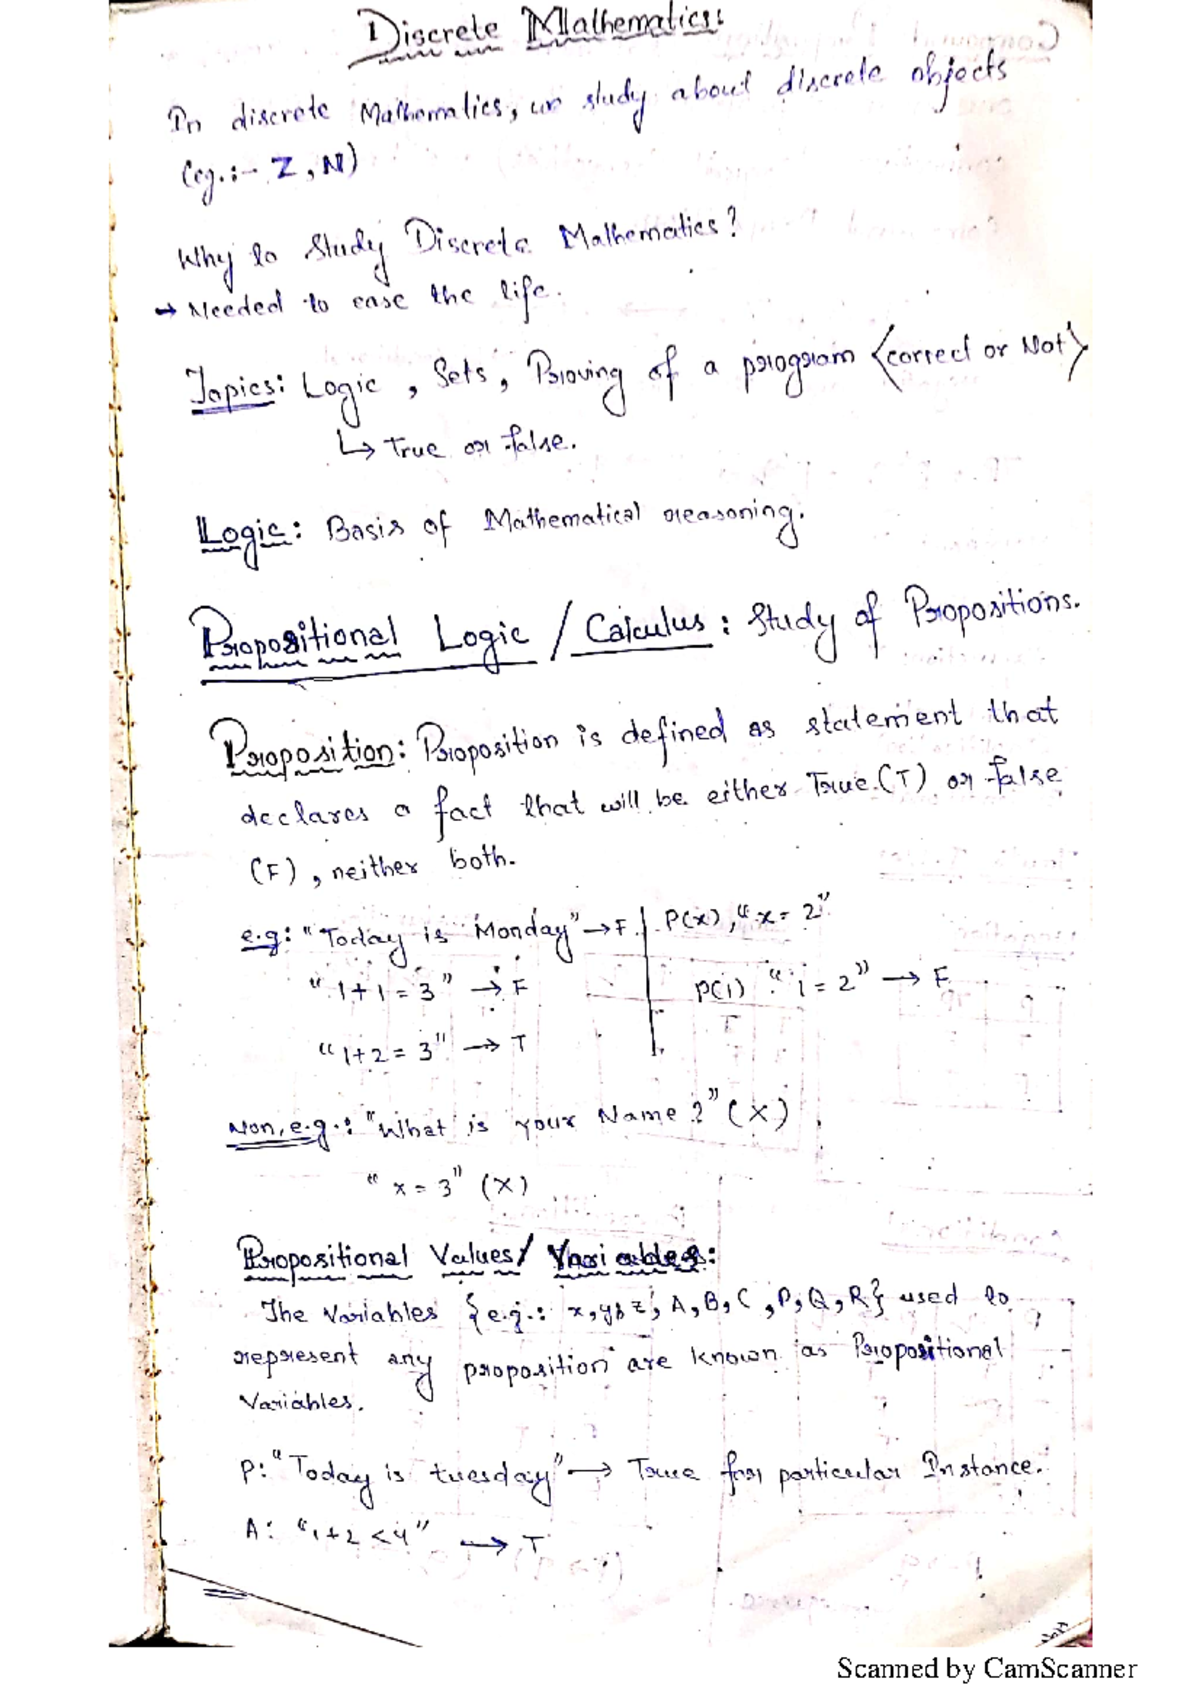 Discrete Mathematics:
In discrete Mathematics, we study about discrete objects
(eg.:- Z, N)
Why to Study Discrete Mathematics?
→ Needed to ease the life.
Topics: Logic, Sets, Proving of a program <correct or Not>
↳ True or false.
Logic: Basis of Mathematical reasoning.
Propositional Logic / Calculus: Study of Propositions.
Proposition: Proposition is defined as statement that
declares a fact that will be either True (T) or false
(F), neither both.
e.g: "Today is Monday" → F | P(x), "x = 2"
"1+1 = 3" → F P(1) "1 = 2" → F
"1+2 = 3" → T
Non, e.g.: "What is your Name ?" (X)
"x = 3" (X)
Propositional Values/ Variables:
The variables {e.g.: x, y, z, A, B, C, P, Q, R} used to
represent any proposition are known as Propositional
Variables.
P: "Today is tuesday" → True for particular Instance.
A: "1+2 < 4" → T
Scanned by CamScanner